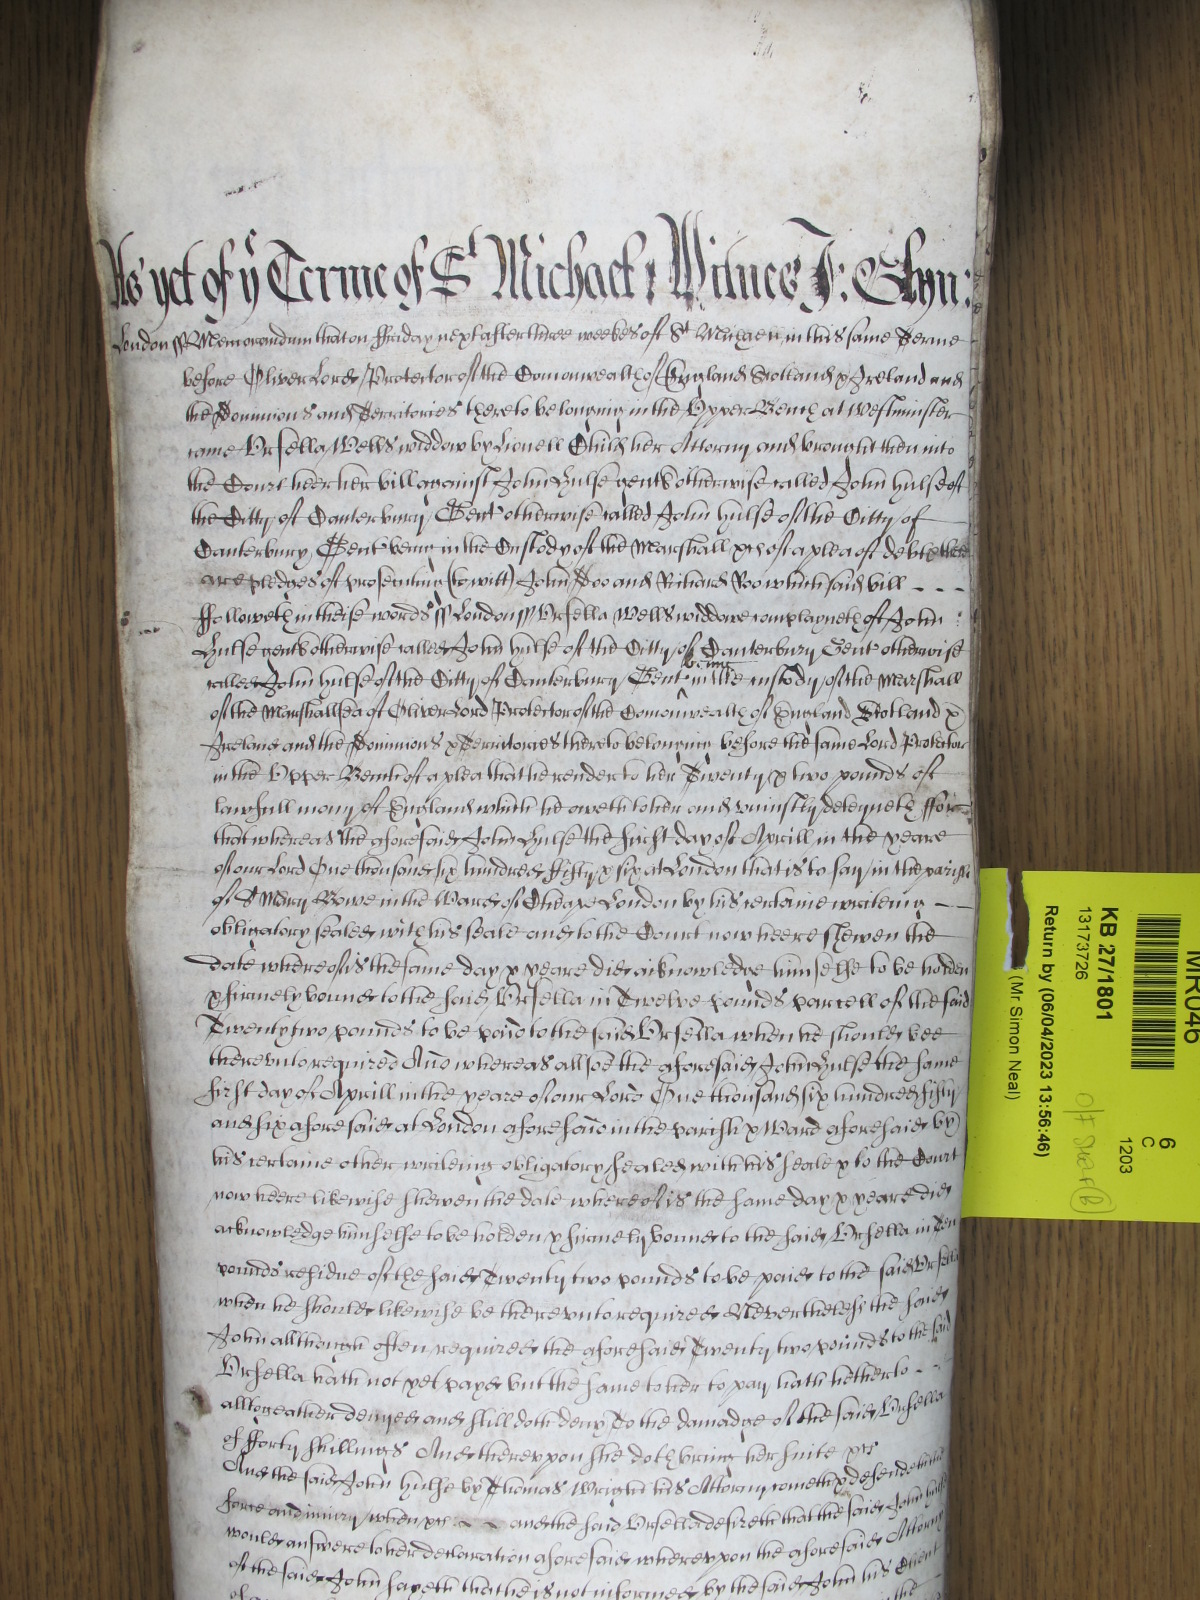 As yet of ye Terme of St Michael Witnes J: Glyn:
London ss Memorandum that on ffriday next after three weekes of St Michaell in this same Terme
before Oliver Lord Protector of the Comonwealth of England Scotland & Ireland and
the Dominions and Territories thereto belonging in the Upper Bench at Westminster
came Ursella Wells widdow by Lionell Child her Attorny and brought then into
the Court heer her bill against John Hulse gent otherwise called John hulse of
the Citty of Canterbury Gent otherwise called John hulse of the Citty of
Canterbury Gent being in the Custody of the Marshall &c of a plea of debt there
are pledges of prosecuting (to witt) John Doo and Richard Roo which said bill - - -
ffolloweth in theise words ss London ss Ursella Wells widdowe complayneth of John
Hulse gent otherwise called John hulse of the Citty of Canterbury Gent otherwise
called John hulse of the Citty of Canterbury Gent being in the custody of the Marshall
of the Marshallsea of Oliver Lord Protector of the Comonwealth of England Scotland &
Ireland and the Dominions & Territories thereto belonging before the same Lord Protector
in the Upper Bench of a plea that he render to her Twenty & two pounds of
lawfull mony of England which he oweth to her and uniustly deteyneth ffor
that whereas the aforesaid John Hulse the first day of Aprill in the yeare
of our Lord One thousand six hundred fifty & six at London that is to say in the parish
of St Mary Bowe in the Ward of Cheape London by his certaine writeing
obligatory sealed with his seale and to the Court now heere shewen the
date whereof is the same day & yeare did acknowledge himselfe to be holden
& firmely bound to the said Ursella in Twelve pounds parcell of the said
Twenty two pounds to be paid to the said Ursella when he should bee
thereunto required And whereas allsoe the aforesaid John Hulse the same
first day of Aprill in the yeare of our Lord One thousand six hundred fifty
and six aforesaid at London aforesaid in the parish & Ward aforesaid by
his certaine other writeing obligatory sealed with his seale & to the Court
now heere likewise shewen the date whereof is the same day & yeare did
acknowledge himselfe to be holden & firmely bound to the said Ursella in Ten
pounds residue of the said Twenty two pounds to be paid to the said Ursella
when he should likewise be thereunto required Neverthelesse the said
John allthough often required the aforesaid Twenty two pounds to the said
Ursella hath not yet payd but the same to her to pay hath hetherto - -
alltogeather denyed and still doth deny To the damadge of the said Ursella
of fforty shillings And thereuppon she doth bring her suite &c
And the said John hulse by Thomas Wright his Attorny cometh & defendeth the
force and iniury when &c - - and the said Ursella desireth that the said John hulse
would answere to her declaration aforesaid whereuppon the aforesaid Attorny
of the said John sayeth that he is not informed by the said John his Client
MR046
6
C
1203
KB 27/1801
13173726
Return by (06/04/2023 13:56:46)
(Mr Simon Neal)